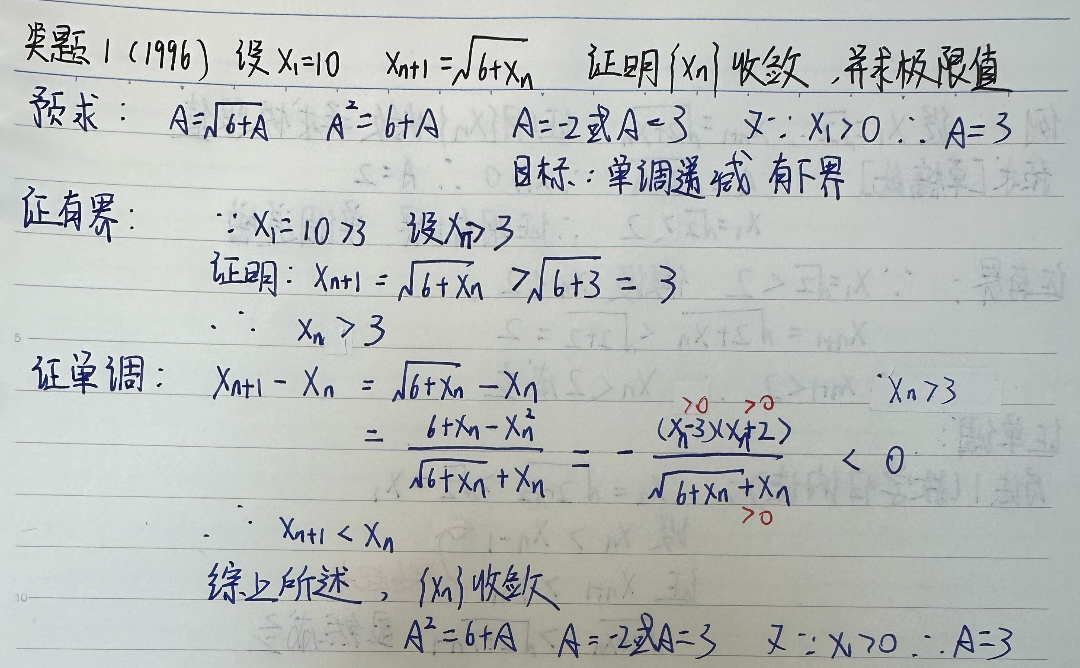 类题1(1996) 设 x₁=10 xₙ₊₁=√(6+xₙ) 证明{xₙ}收敛,并求极限值
预求: A=√(6+A) A²=6+A A=-2或A=3 又∵x₁>0 ∴A=3
目标:单调递减 有下界
证有界: ∵x₁=10>3 设xₙ>3
证明: xₙ₊₁=√(6+xₙ) >√(6+3) = 3
∴ xₙ>3
证单调: xₙ₊₁-xₙ = √(6+xₙ) -xₙ xₙ>3
= (6+xₙ-xₙ²)/(√(6+xₙ)+xₙ) = -((xₙ-3)(xₙ+2))/(√(6+xₙ)+xₙ) < 0
>0 >0
>0
∴ xₙ₊₁<xₙ
综上所述,{xₙ}收敛
A²=6+A A=-2或A=3 又∵x₁>0 ∴A=3
5
10